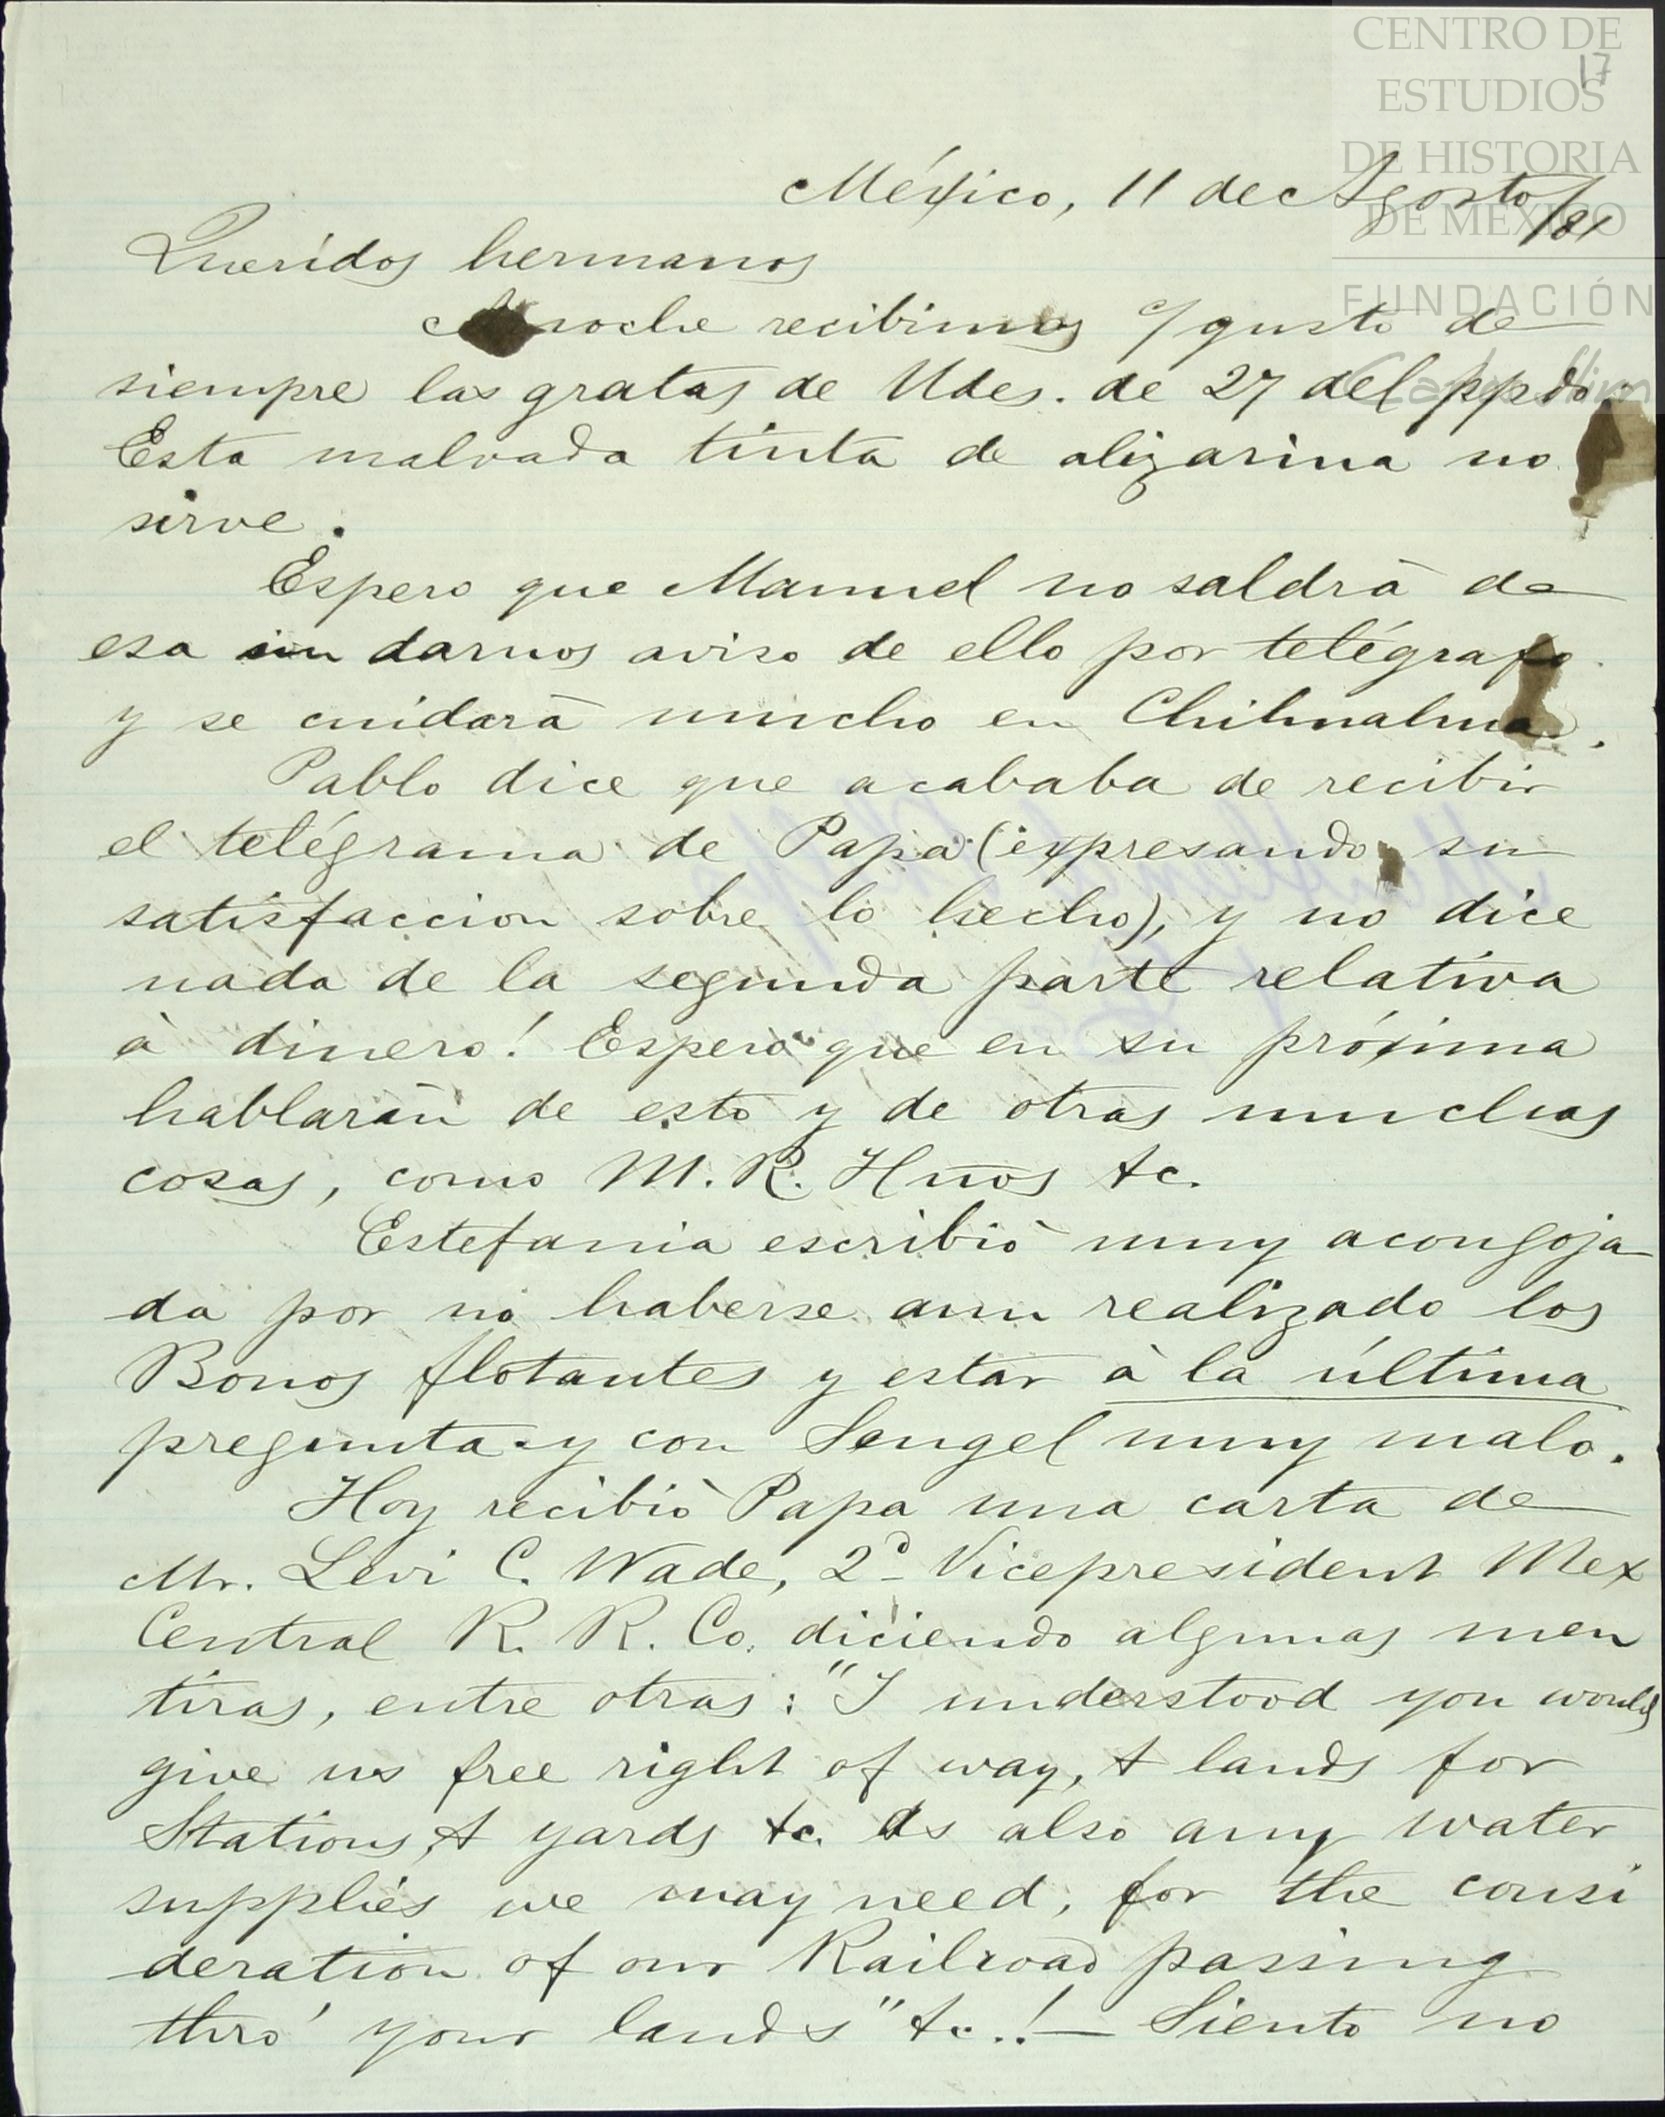 CENTRO DE
ESTUDIOS
DE HISTORIA
DE MÉXICO
FUNDACIÓN
Carlos Slim
17
México, 11 de Agosto/81
Queridos hermanos
Anoche recibimos c/ gusto de
siempre las gratas de Udes. de 27 del ppdo.
Esta malvada tinta de alizarina no
sirve.
Espero que Manuel no saldrà de
esa sin darnos aviso de ello por telégrafo
y se cuidarà mucho en Chihuahua.
Pablo dice que acababa de recibir
el telégrama de Papa (expresando su
satisfaccion sobre lo hecho), y no dice
nada de la segunda parte relativa
à dinero! Espero que en su próxima
hablaràn de esto y de otras muchas
cosas, como M. R. Hnos &c.
Estefania escribiò muy acongoja
da por no haberse aun realizado los
Bonos flotantes y estar à la última
pregunta y con Sengel muy malo.
Hoy recibiò Papa una carta de
Mr. Levi C. Wade, 2d Vicepresident Mex
Central R. R. Co. diciendo algunas men
tiras, entre otras: "I understood you would
give us free right of way, & lands for
Stations, & yards &c. As also any water
supplies we may need, for the consi
deration of our Railroad passing
thro' your lands" &c.! — Siento no